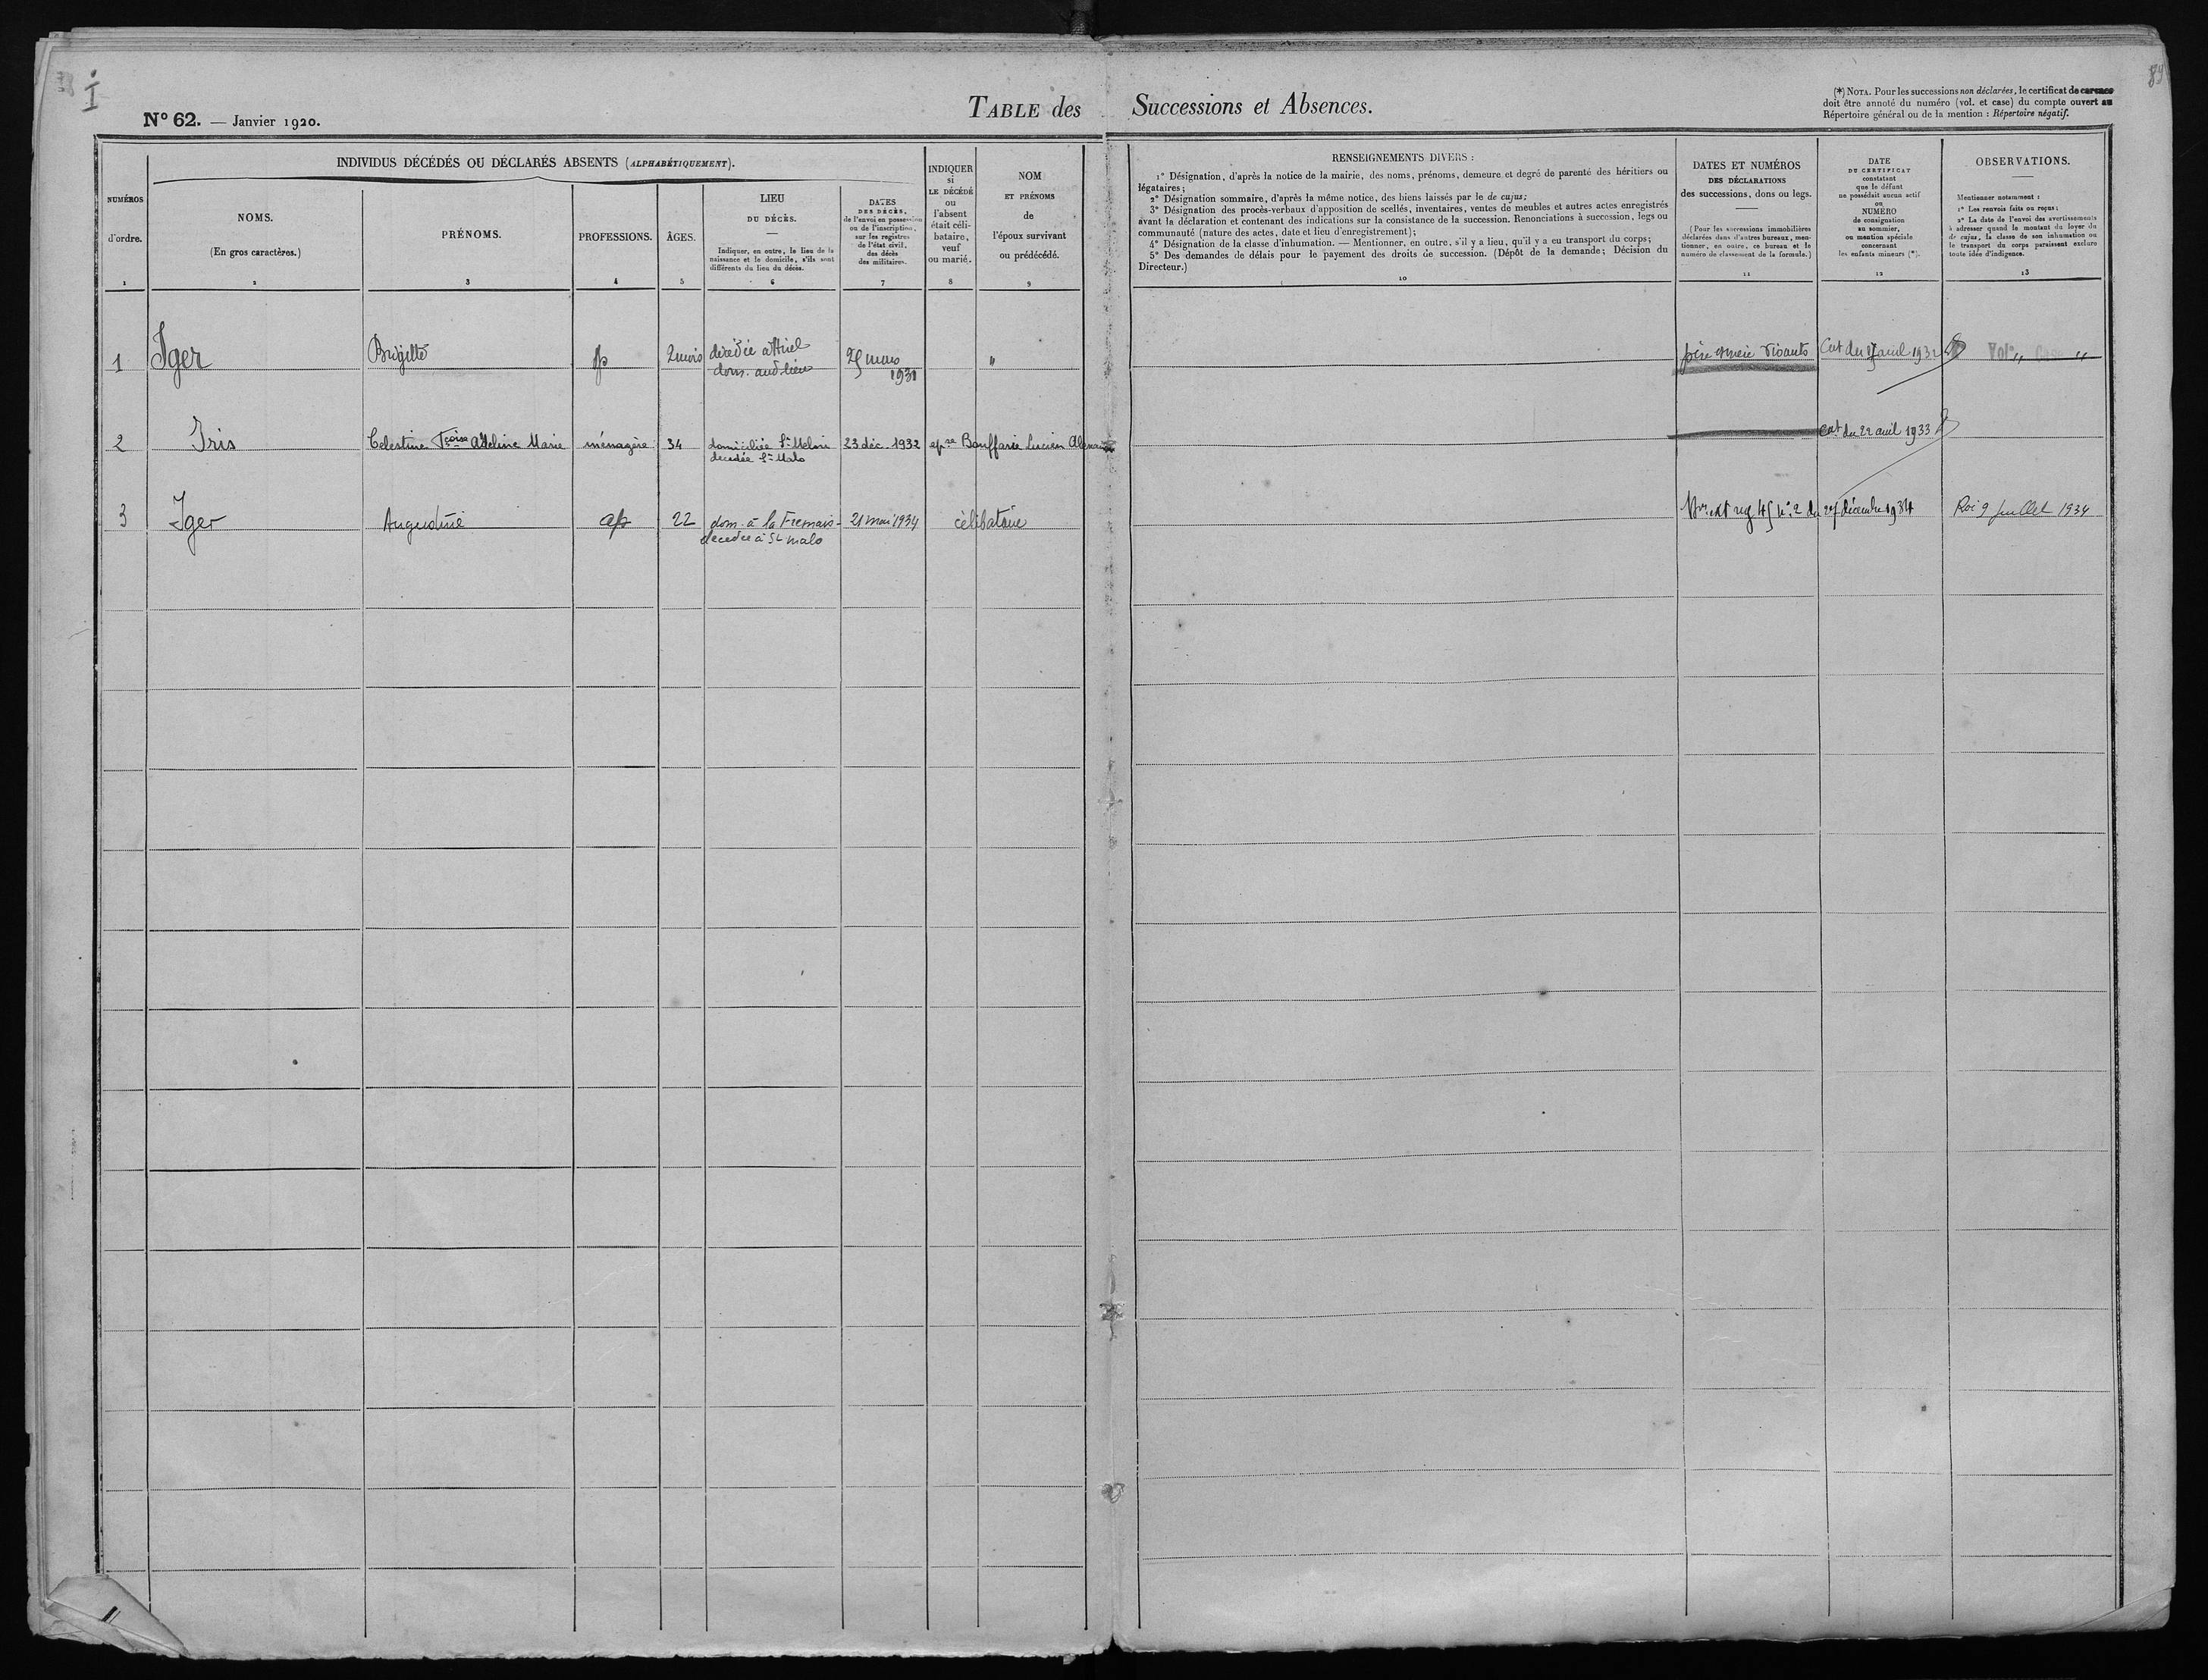 I
84
N° 62. — Janvier 1920.
TABLE des Successions et Absences.
(*) NOTA. Pour les successions non déclarées, le certificat de carence
doit être annoté du numéro (vol. et case) du compte ouvert au
Répertoire général ou de la mention : Répertoire négatif.
NUMÉROS
d'ordre.
1
INDIVIDUS DÉCÉDÉS OU DÉCLARÉS ABSENTS (ALPHABÉTIQUEMENT).
NOMS.
(En gros caractères.)
2
PRÉNOMS.
3
PROFESSIONS.
4
ÂGES.
5
LIEU
DU DÉCÈS.
Indiquer, en outre, le lieu de la
naissance et le domicile, s'ils sont
différents du lieu du décès.
6
DATES
DES DÉCÈS,
de l'envoi en possession
ou de l'inscription,
sur les registres
de l'état civil,
des décès
des militaires.
7
INDIQUER
si
LE DÉCÉDÉ
ou
l'absent
était céli-
bataire,
veuf
ou marié.
8
NOM
ET PRÉNOMS
de
l'époux survivant
ou prédécédé.
9
RENSEIGNEMENTS DIVERS :
1° Désignation, d'après la notice de la mairie, des noms, prénoms, demeure et degré de parenté des héritiers ou
légataires;
2° Désignation sommaire, d'après la même notice, des biens laissés par le de cujus;
3° Désignation des procès-verbaux d'apposition de scellés, inventaires, ventes de meubles et autres actes enregistrés
avant la déclaration et contenant des indications sur la consistance de la succession. Renonciations à succession, legs ou
communauté (nature des actes, date et lieu d'enregistrement);
4° Désignation de la classe d'inhumation. — Mentionner, en outre, s'il y a lieu, qu'il y a eu transport du corps;
5° Des demandes de délais pour le payement des droits de succession. (Dépôt de la demande; Décision du
Directeur.)
10
DATES ET NUMÉROS
DES DÉCLARATIONS
des successions, dons ou legs.
(Pour les successions immobilières
déclarées dans d'autres bureaux, men-
tionner, en outre, ce bureau et le
numéro de classement de la formule.)
11
DATE
DU CERTIFICAT
constatant
que le défunt
ne possédait aucun actif
ou
NUMÉRO
de consignation
au sommier,
ou mention spéciale
concernant
les enfants mineurs (*).
12
OBSERVATIONS.
Mentionner notamment :
1° Les renvois faits ou reçus;
2° La date de l'envoi des avertissements
à adresser quand le montant du loyer du
de cujus, la classe de son inhumation ou
le transport du corps paraissent exclure
toute idée d'indigence.
13
1 Iger Brigitte sp 2 mois décédée à Hirel 25 mars " père et mère vivants Cert du avril 1932 Vol° " Case "
dom. aud. lieu 1931
2 Iris Celestine Fçoise Adeline Marie ménagère 34 domiciliée St Meloir 23 déc. 1932 epse Bouffarie Lucien cert du 22 avril 1933
décédée St Malo
3 Iger Augustine sp 22 dom. à la Fremais- 21 mai 1934 célibataire reg 45 n° 2 du 27 décembre 1934 9 juillet 1934
décédée à St malo